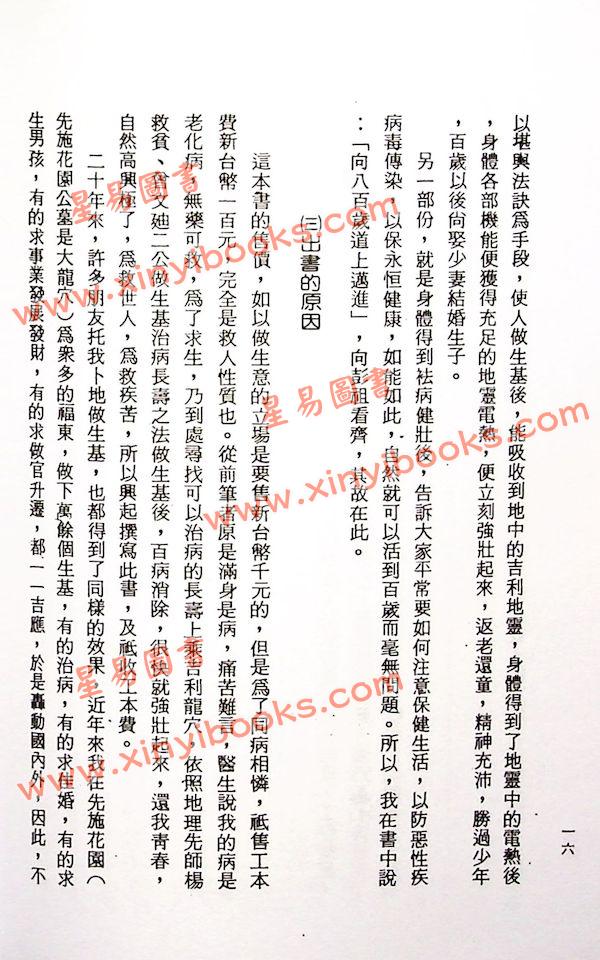 以堪輿法訣爲手段，使人做生基後，能吸收到地中的吉利地靈，身體得到了地靈中的電熱後
，身體各部機能便獲得充足的地靈電熱，便立刻強壯起來，返老還童，精神充沛，勝過少年
，百歲以後尙娶少妻結婚生子。
另一部份，就是身體得到袪病健壯後，告訴大家平常要如何注意保健生活，以防惡性疾
病毒傳染，以保永恒健康，如能如此，自然就可以活到百歲而毫無問題。所以，我在書中說
：「向八百歲道上邁進」，向彭祖看齊，其故在此。
㈢出書的原因
這本書的售價，如以做生意的立場是要售新台幣千元的，但是爲了同病相憐，祗售工本
費新台幣一百元，完全是救人性質也。從前筆者原是滿身是病，痛苦難言，醫生說我的病是
老化病，無藥可救，爲了求生，乃到處尋找可以治病的長壽上乘吉利龍穴，依照地理先師楊
救貧、曾文辿二公做生基治病長壽之法做生基後，百病消除，很快就強壯起來，還我青春，
自然高興極了，爲救世人，爲救疾苦，所以興起撰寫此書，及祗收工本費。
二十年來，許多朋友托我卜地做生基，也都得到了同樣的效果，近年來我在先施花園（
先施花園公墓是大龍穴）爲衆多的福東，做下萬餘個生基，有的治病，有的求佳婚，有的求
生男孩，有的求事業發展發財，有的求做官升遷，都一一吉應，於是轟動國內外，因此，不
一六
星易圖書
www.xinyibooks.com
星易圖書
www.xinyibooks.com
星易圖書
www.xinyibooks.com